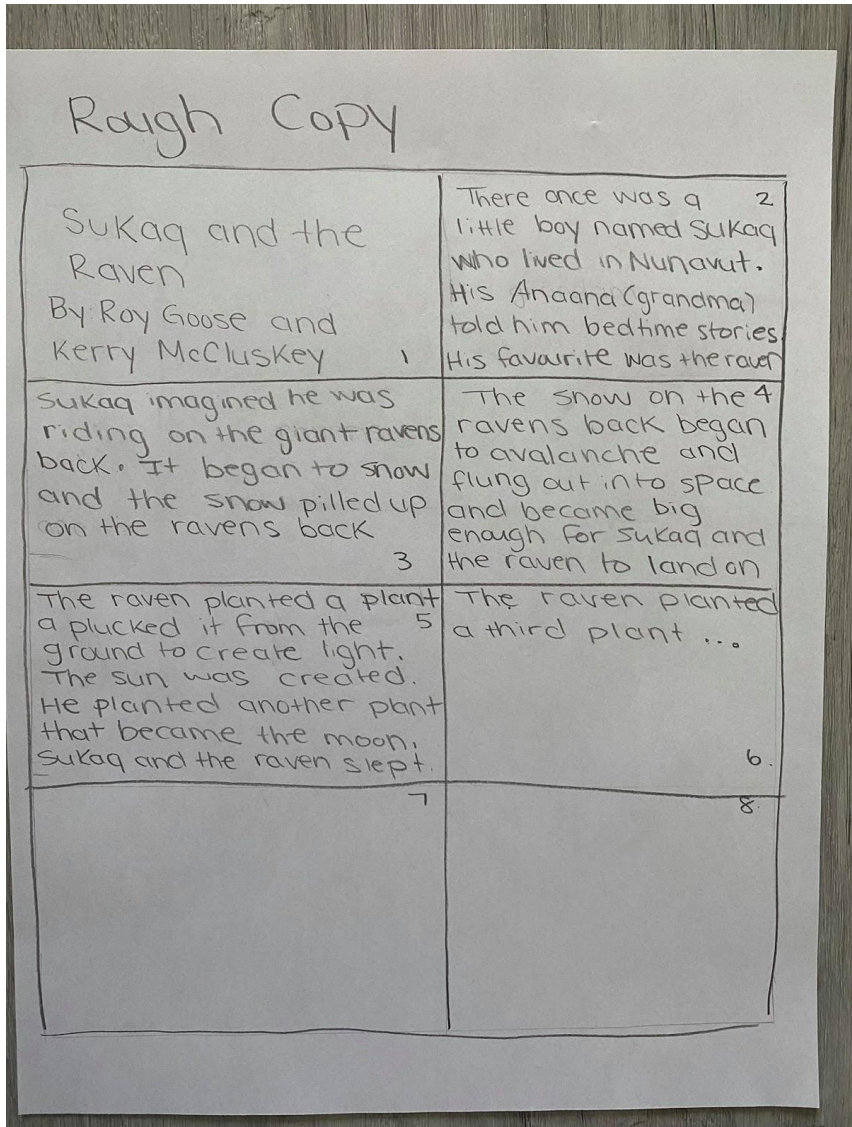 Rough Copy
Sukaq and the
Raven
By Roy Goose and
Kerry McCluskey
1
There once was a 2
little boy named Sukaq
who lived in Nunavut.
His Anaana (grandma)
told him bedtime stories
His favourite was the raven
Sukaq imagined he was
riding on the giant ravens
back. It began to snow
and the snow pilled up
on the ravens back
3
The snow on the 4
ravens back began
to avalanche and
flung out into space
and became big
enough for Sukaq and
the raven to land on
The raven planted a plant
a plucked it from the 5
ground to create light.
The sun was created.
He planted another plant
that became the moon.
Sukaq and the raven slept.
The raven planted
a third plant ...
6.
7
8.